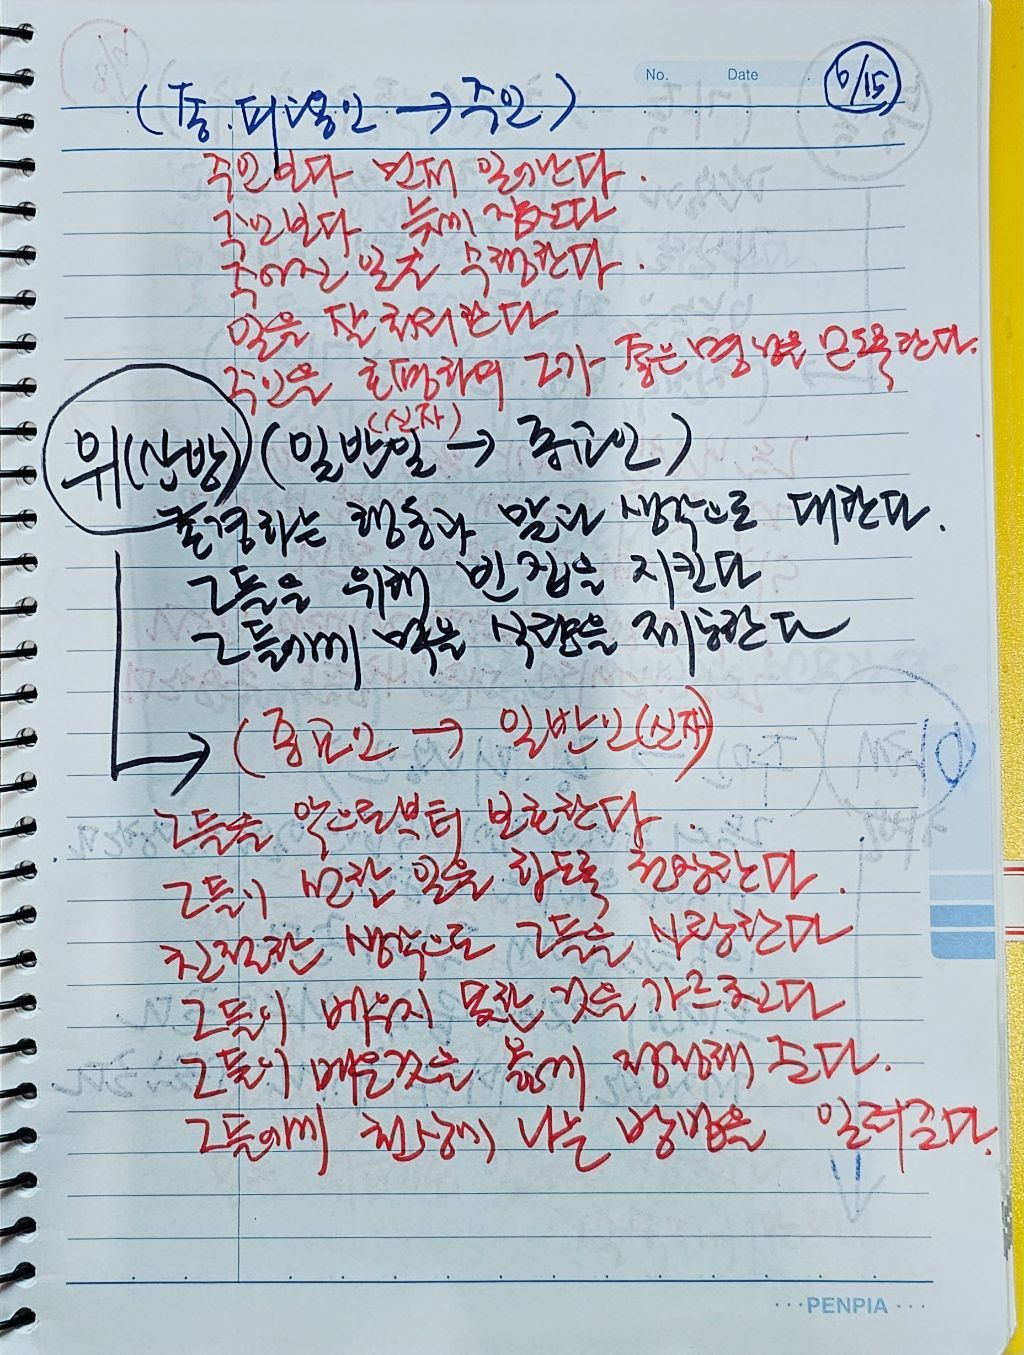 No. Date 6/15
(종.피고용인 → 주인)
주인보다 먼저 일어난다.
주인보다 늦게 잠잔다
주어진 일을 수행한다.
일을 잘 처리한다
주인을 호평하며 그가 좋은 명성을 얻도록한다.
(신자)
위(상방) (일반인 → 종교인)
존경하는 행동과 말과 생각으로 대한다.
그들을 위해 빈 집을 지킨다
그들에게 먹을 식량을 제공한다
(종교인 → 일반인(신자)
그들을 악으로부터 보호한다.
그들이 선한 일을 하도록 권장한다.
친절한 생각으로 그들을 사랑한다
그들이 배우지 못한 것을 가르친다
그들이 배운것을 옳게 정정해 준다.
그들에게 천상에 나는 방법을 일러준다.
PENPIA